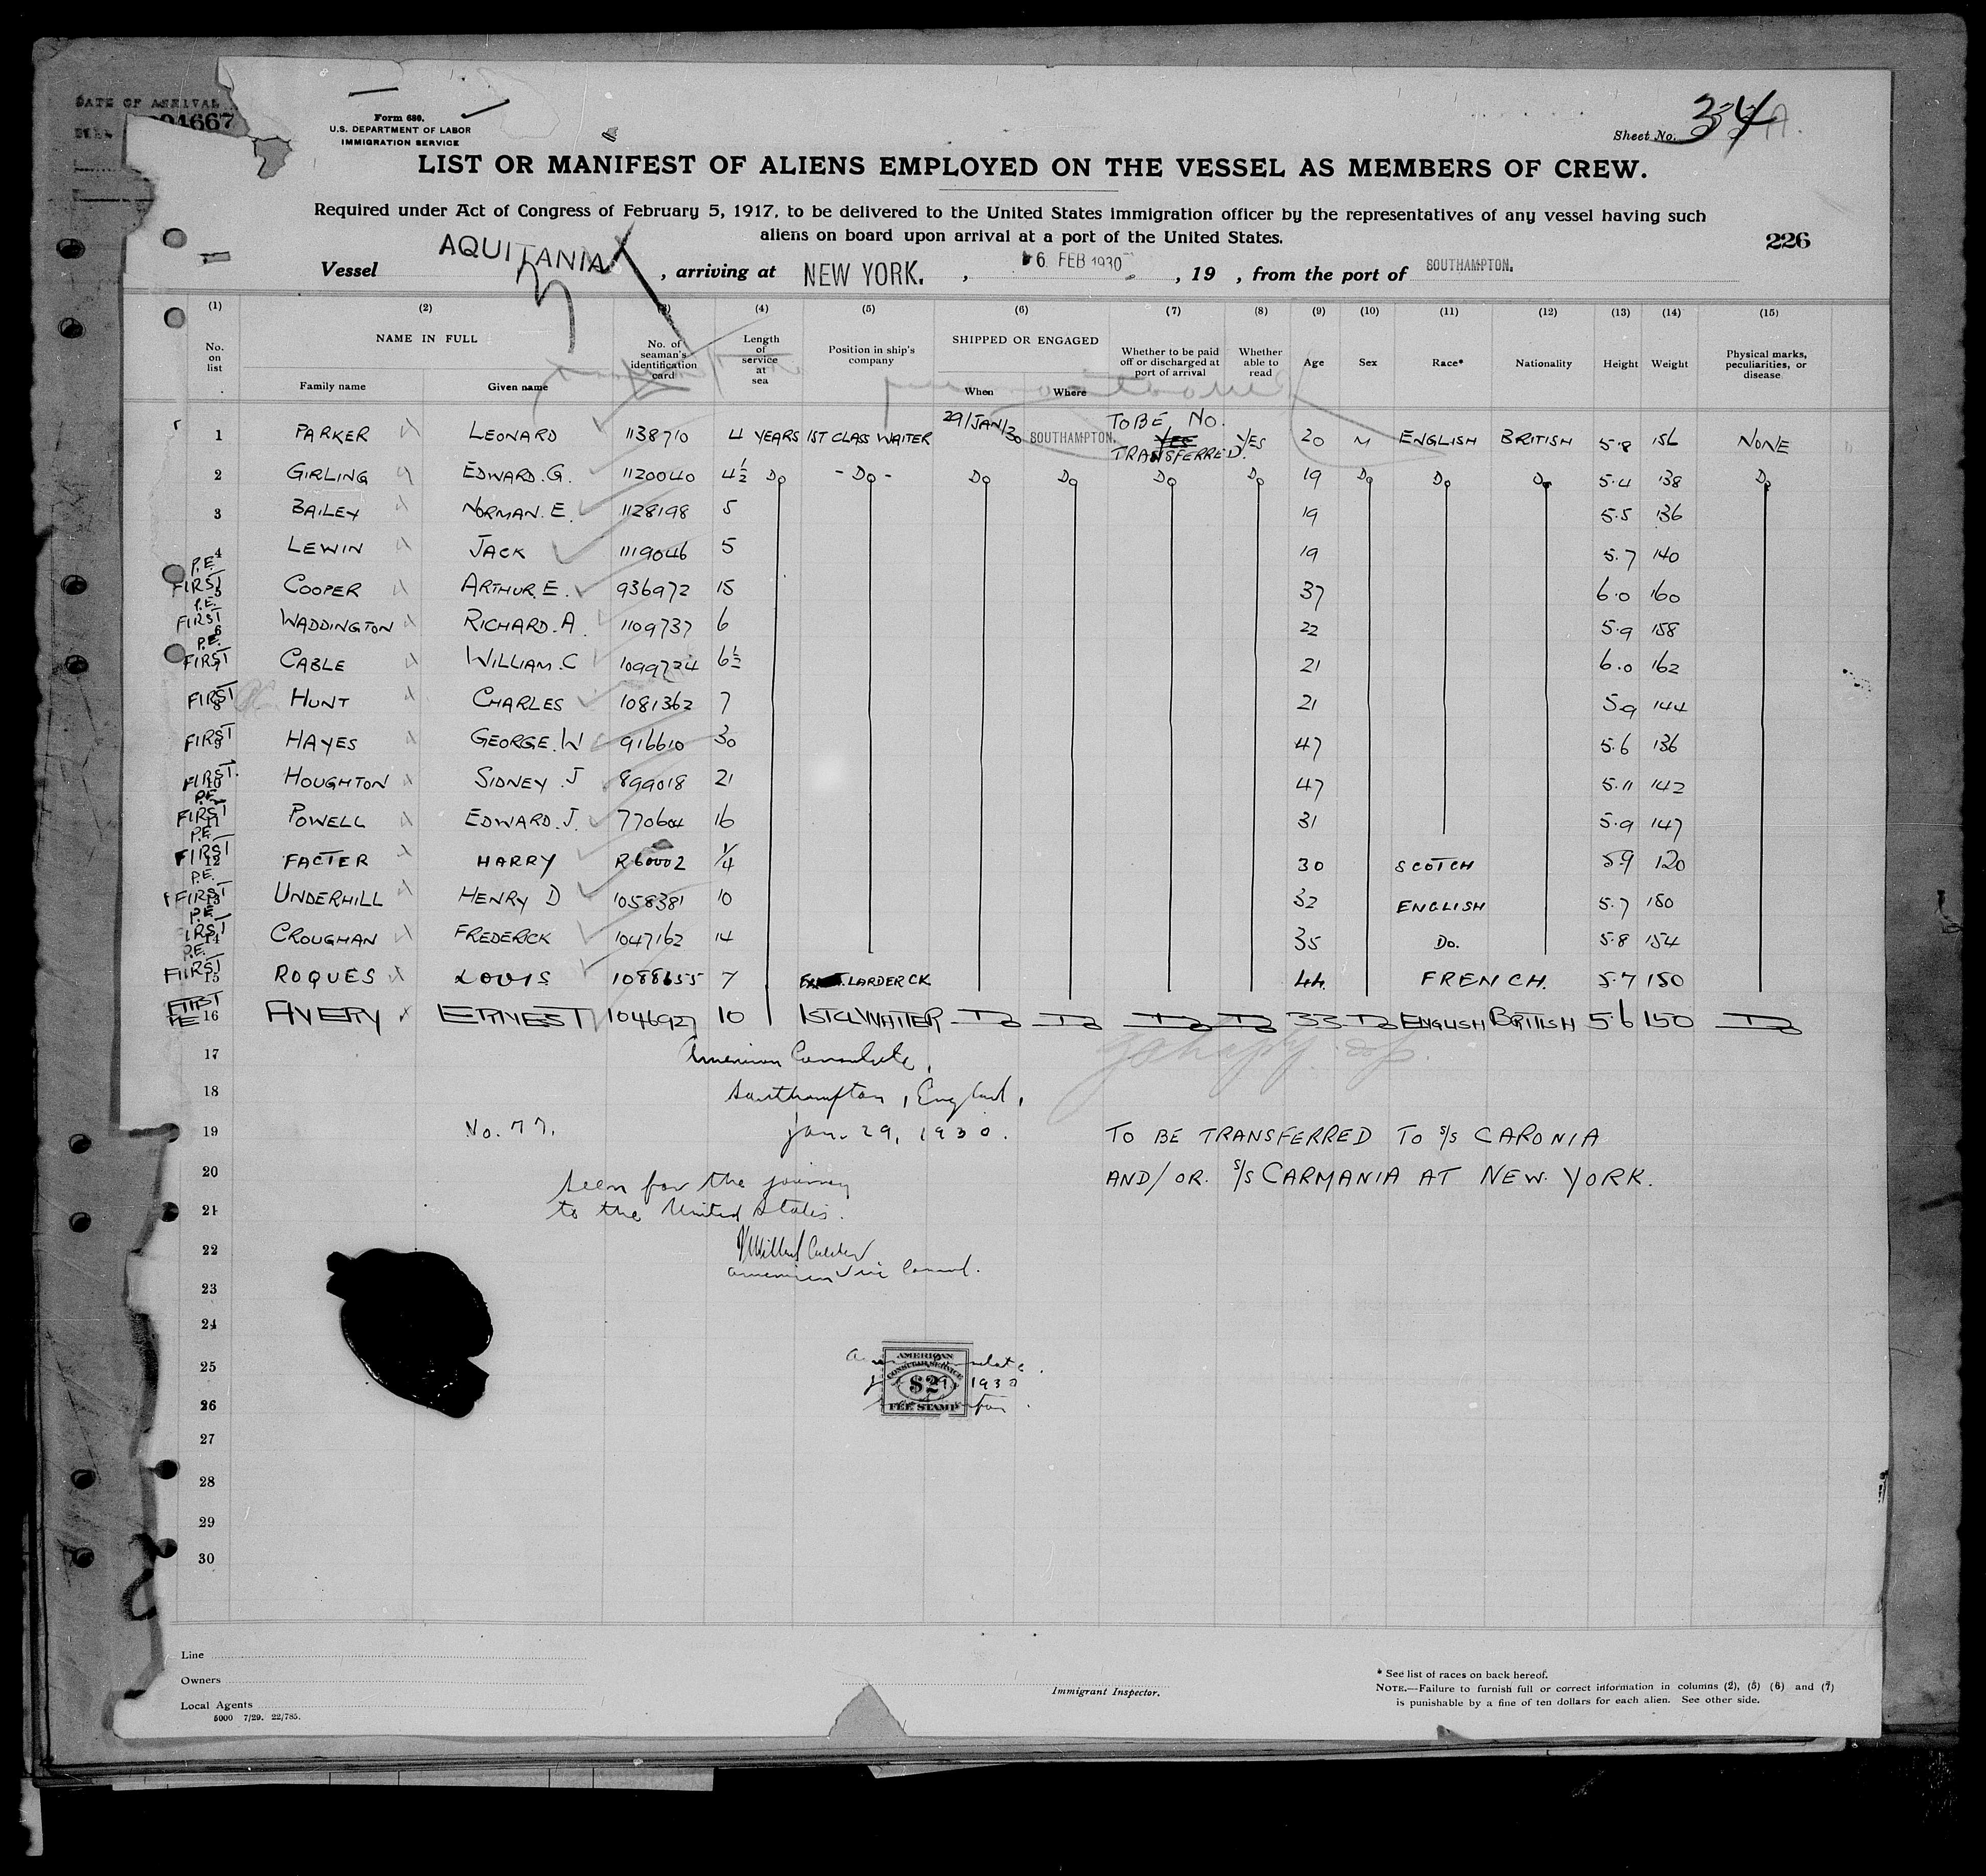 DATE OF ARRIVAL
Form 680.
U.S. DEPARTMENT OF LABOR
IMMIGRATION SERVICE
Sheet No. 34 A.
LIST OR MANIFEST OF ALIENS EMPLOYED ON THE VESSEL AS MEMBERS OF CREW.
Required under Act of Congress of February 5, 1917, to be delivered to the United States immigration officer by the representatives of any vessel having such
aliens on board upon arrival at a port of the United States.
226
Vessel AQUITANIA, arriving at NEW YORK., 6 FEB 1930, 19 , from the port of SOUTHAMPTON.
(1) (2) (3) (4) (5) (6) (7) (8) (9) (10) (11) (12) (13) (14) (15)
No. on list NAME IN FULL Family name Given name No. of seaman's identification card Length of service at sea Position in ship's company SHIPPED OR ENGAGED When Where Whether to be paid off or discharged at port of arrival Whether able to read Age Sex Race* Nationality Height Weight Physical marks, peculiarities, or disease
1 PARKER LEONARD 1138710 4 YEARS 1ST CLASS WAITER 29/JAN/30 SOUTHAMPTON. TO BE NO. YES TRANSFERRED. YES 20 M ENGLISH BRITISH 5.8 156 NONE
2 GIRLING EDWARD.G. 1120040 4½ Do - Do - Do Do Do Do 19 Do Do Do 5.4 138 Do
3 BAILEY NORMAN.E. 1128198 5 19 5.5 136
4 LEWIN JACK 1119046 5 19 5.7 140
P.E. FIRST 5 COOPER ARTHUR.E. 936972 15 37 6.0 160
P.E. FIRST 6 WADDINGTON RICHARD.A. 1109737 6 22 5.9 158
P.E. FIRST 7 CABLE WILLIAM.C 1099724 6½ 21 6.0 162
FIRST 8 HUNT CHARLES 1081362 7 21 5.9 144
FIRST 9 HAYES GEORGE.W 916610 30 47 5.6 136
FIRST. 10 HOUGHTON SIDNEY.J 899018 21 47 5.11 142
P.E. FIRST 11 POWELL EDWARD.J. 770604 16 31 5.9 147
P.E. FIRST 12 FACTER HARRY R60002 1/4 30 SCOTCH 5.9 120
P.E. FIRST 13 UNDERHILL HENRY D 1058381 10 32 ENGLISH 5.7 150
P.E. FIRST 14 CROUGHAN FREDERICK 1047162 14 35 Do. 5.8 154
P.E. FIRST 15 ROQUES LOUIS 1088655 7 LARDER CK 44 FRENCH. 5.7 150
FIRST PE 16 AVERY ERNEST 1046927 10 1ST CL WAITER Do Do Do Do 33 Do ENGLISH BRITISH 5.6 150 Do
17 American Consulate,
18 Southampton, England,
19 No. 77. Jan. 29, 1930. TO BE TRANSFERRED TO S/S CARONIA
20 AND/OR. S/S CARMANIA AT NEW YORK.
Seen for the journey
21 to the United States.
22
American Vice Consul.
23
24
25 AMERICAN CONSULAR SERVICE $2 FEE STAMP
1930
26
27
28
29
30
Line
Owners
Local Agents
5000 7/29. 22/785.
Immigrant Inspector.
* See list of races on back hereof.
NOTE.—Failure to furnish full or correct information in columns (2), (5) (6) and (7)
is punishable by a fine of ten dollars for each alien. See other side.